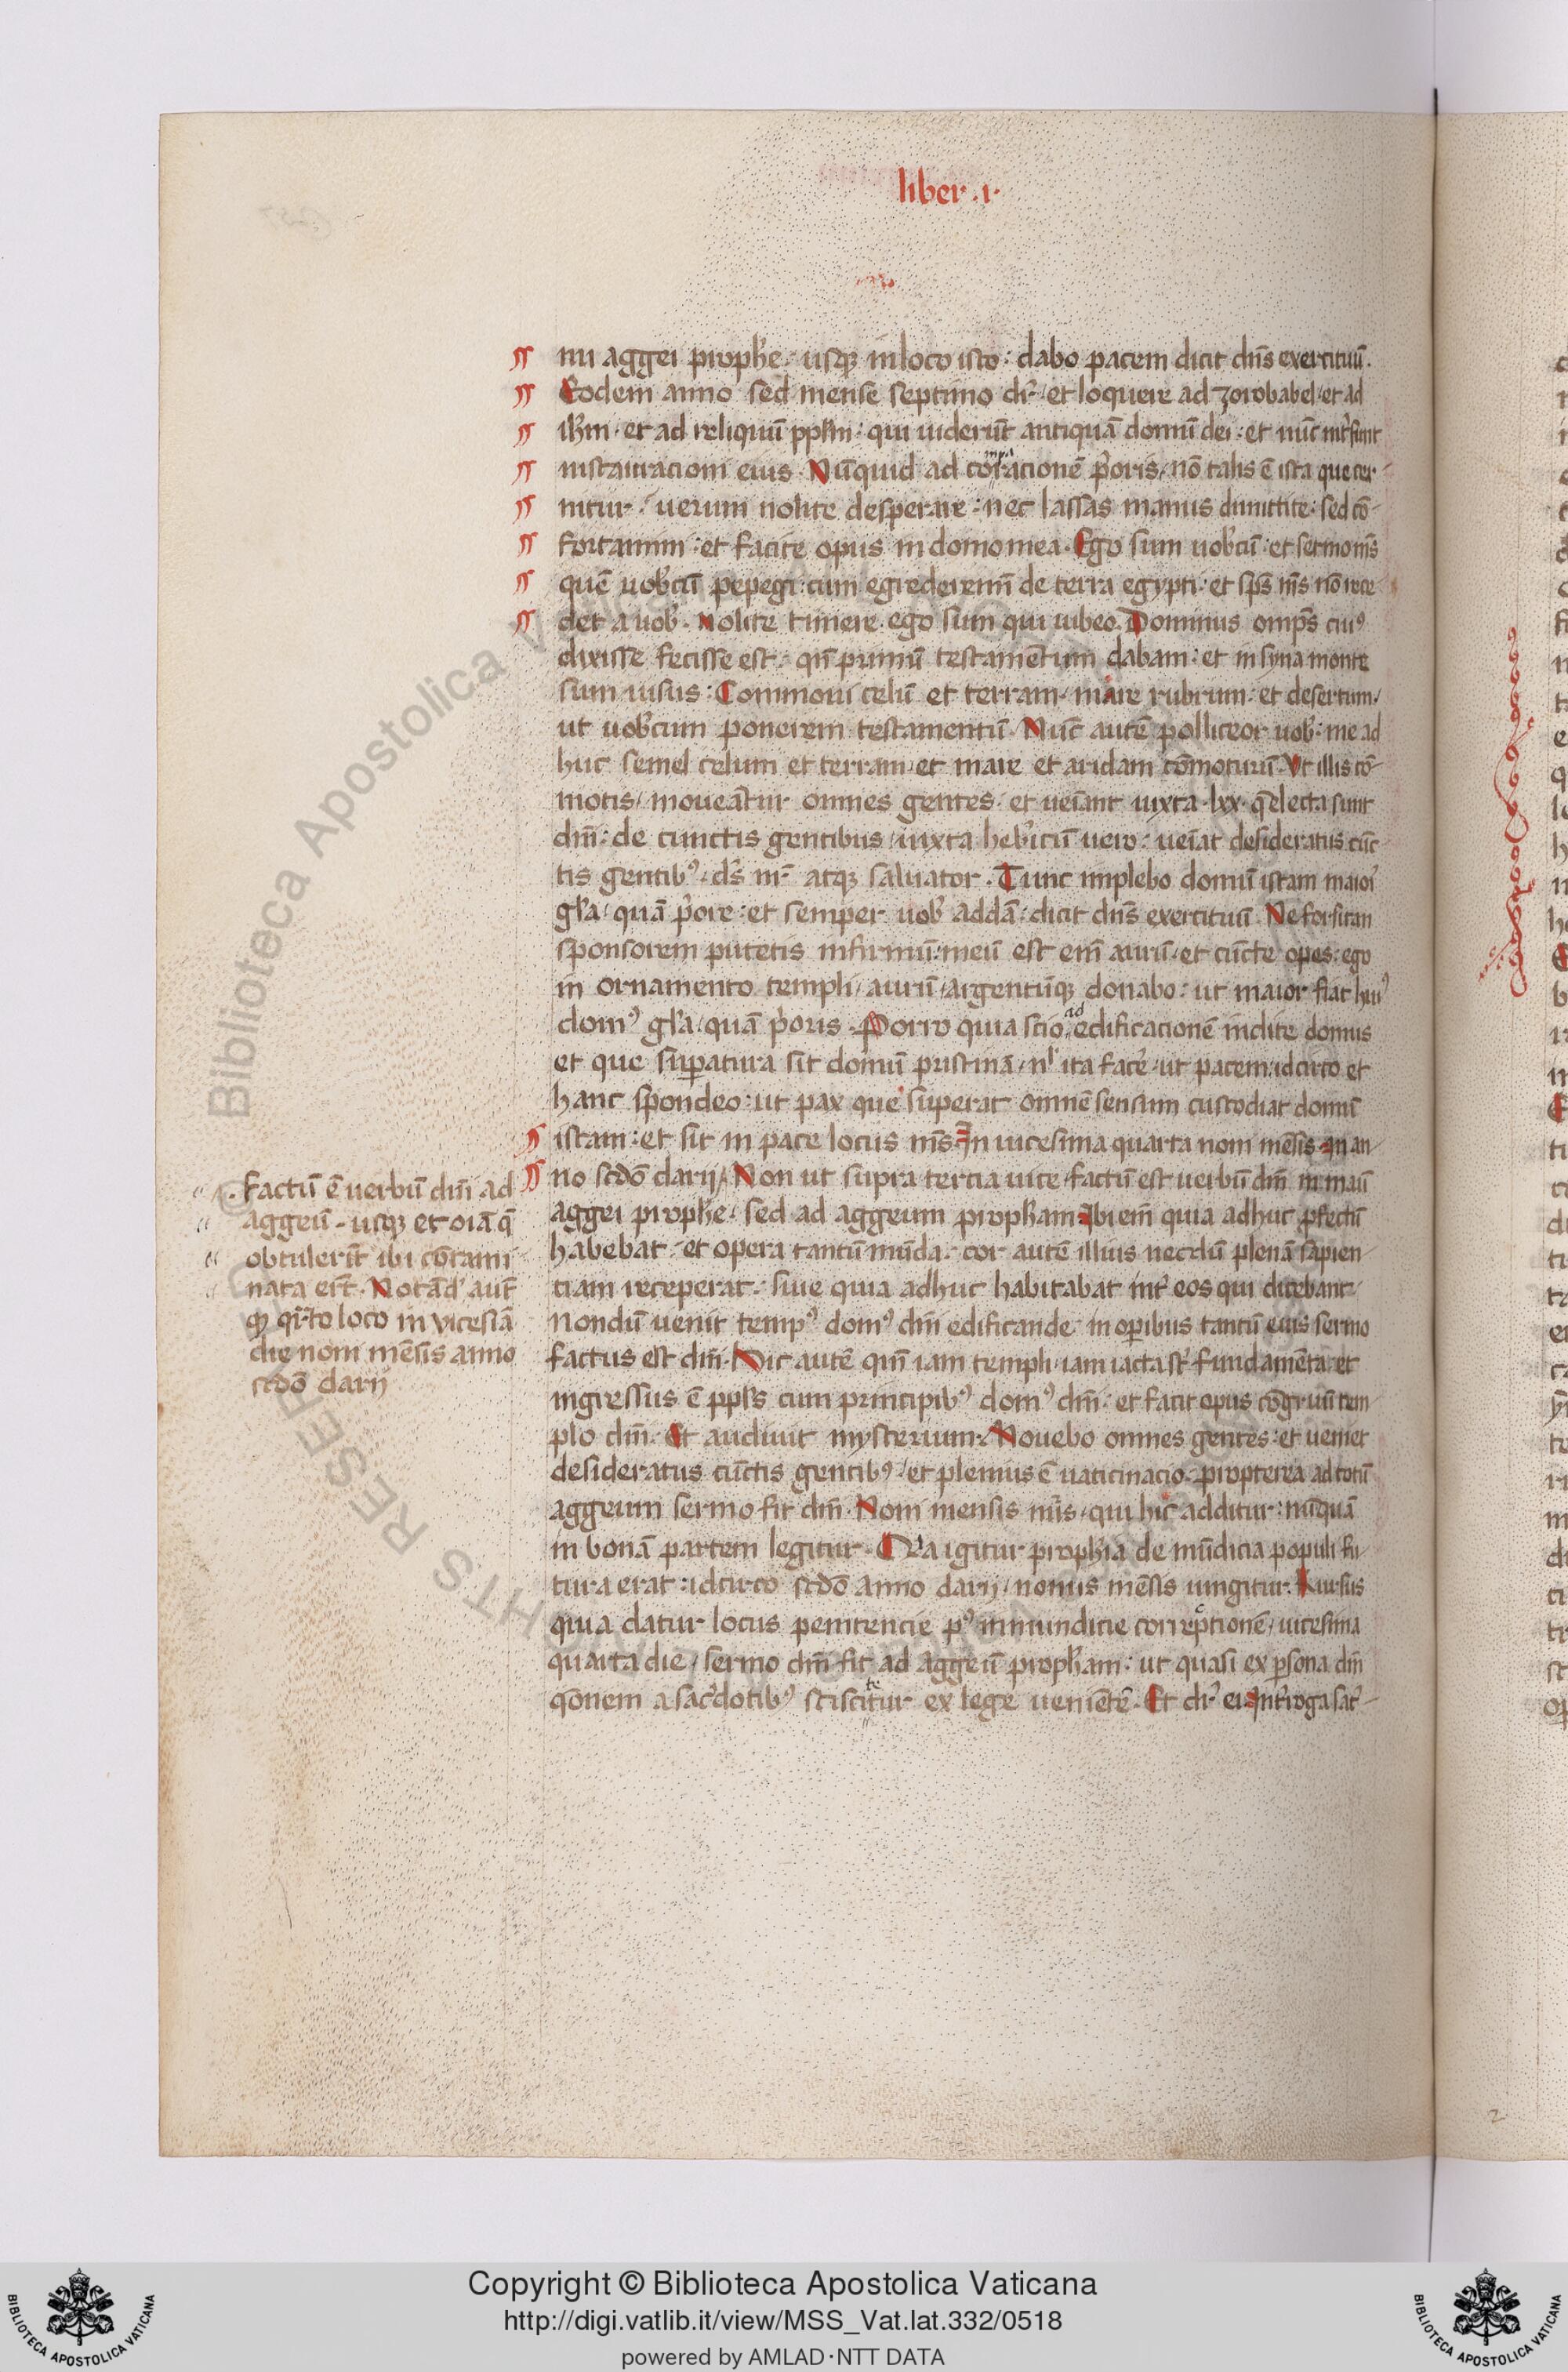 liber .i.
nu aggei prophe. usq; in loco isto: dabo pacem dicit dn̄s exercituū.
Eodem anno sed mense septimo dr̄. et loquere ad zorobabel. et ad
ih̄m. et ad reliquiū pplm̄. qui uiderūt antiquā domū dei: et nūc int̄sunt
instauracioni eius. Nūquid ad cōꝑacionē p̄oris, nō talis ē ista que cer-
nitur? uerum nolite desperare: nec lassas manus dimittite: sed cō-
fortamini: et facite opus in domo mea. Ego sum uob̄cū: et sermo ms̄
quē uob̄cū pepegi: cum egrederemī de terra egypti: et sp̄s ms̄ nō rece-
det a uob̄. Nolite timere. ego sum qui iubeo. Dominus omp̄s cuiꝰ
dixisse fecisse est. qn̄ primū testamentum dabam: et in syna monte
sum uisus: Commoui celū et terram. mare rubrum: et desertum,
ut uob̄cum ponerem testamentū. Nūc autē polliceor uob̄. me ad
huc semel celum et terram. et mare et aridam cōmoturū. Ut illis cō-
motis, moueātur omnes gentes. et ueīant iuxta .lxx. q̄ electa sunt
dn̄i: de cunctis gentibus, iuxta heb̄icū uero: ueīat desideratus cūc-
tis gentibꝰ. ds̄ nr̄ atq; saluator. Tunc implebo domū istam maiori
gl̄a, quā p̄ore: et semper uob̄ addā, dicit dn̄s exercituū. Ne forsitan
sponsorem putetis infirmū: meū est em̄ aurū. et cūcte opes: ego
in ornamento templi, aurū, argentūq; donabo: ut maior fiat huiꝰ
domꝰ gl̄a, quā p̄oris. Porro quia scio ad edificacionē inclite domus
et que suꝑatura sit domū pristinā, nl̄ ita face᷑. ut pacem: idcirco et
hanc spondeo: ut pax que superat omnē sensum custodiat domū
istam: et sit in pace locus ms̄. In uicesima quarta noni mēsis. in an-
no scdō darij. Non ut supra tercia uice. factū est uerbū dn̄i in manū
aggei prophe. sed ad aggeum propham. Ibi em̄ quia adhuc ꝑfectū
habebat. et opera tantū mūda. cor autē illius necdū plenā sapien-
tiam receperat. siue quia adhuc habitabat int̄ eos qui dicebant.
Nondū uenit tempꝰ domꝰ dn̄i edificande. in oꝑibus tantū eius sermo
factus est dn̄i. Hic autē qm̄ iam templi. iam iacta st̄ fundamēta: et
ingressus ē ppl̄s cum principibꝰ domꝰ dn̄i: et facit opus cōgruū tem-
plo dn̄i. Et audiuit mysterium. Mouebo omnes gentes: et ueniet
desideratus cūctis gentibꝰ. et plenius ē uaticinacio. propterea ad totū
aggeum sermo fit dn̄i. Noni mensis nūs. qui hic additur: nūquā
in bonā partem legitur. Q̄a igitur prophīa de mūdicia populi fu-
tura erat: idcirco scdō anno darij, nonus mēsis iungitur. Rursus
quia datur locus penitencie pꝰ inmundicie correptionē, uicesima
quarta die, sermo dn̄i fit ad aggeū propham: ut quasi ex ꝑsona dn̄i
q̄onem a sac᷑dotibꝰ sciscitetur ex lege uenientē. Et dr̄ ei. Int̄roga sac᷑-
Factū ē uerbū dn̄i ad
aggeū. usq; et oīa q̄
obtulerūt ibi cōtami
nata erūt. Notād᷑ aut̄
ꝙ qr̄to loco in vicesīa
die noni mēsis anno
scdō darij
Copyright © Biblioteca Apostolica Vaticana
http://digi.vatlib.it/view/MSS_Vat.lat.332/0518
powered by AMLAD·NTT DATA